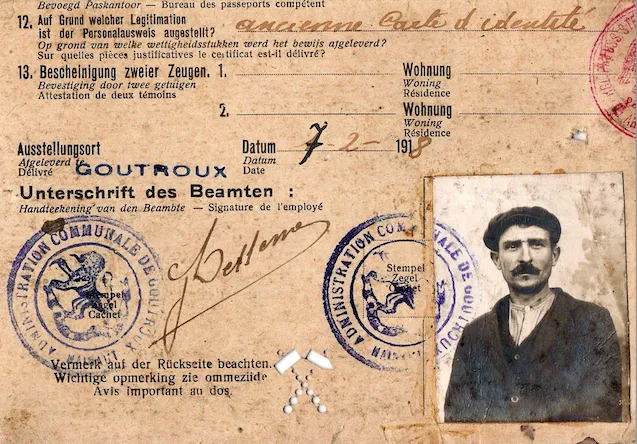 Bevoegd Paskantoor — Bureau des passeports compétent
12. Auf Grund welcher Legitimation ancienne Carte d'identité
ist der Personalausweis augestellt?
Op grond van welke wettigheidsstukken werd het bewijs afgeleverd?
Sur quelles pièces justificatives le certificat est-il délivré?
13. Bescheinigung zweier Zeugen. 1. Wohnung
Bevestiging door twee getuigen Woning
Attestation de deux témoins Résidence
2. Wohnung
Woning
Résidence
Ausstellungsort Datum 7-2-1918
Afgeleverd te GOUTROUX Datum
Délivré Date
Unterschrift des Beamten :
Handteekening van den Beambte — Signature de l'employé
ADMINISTRATION COMMUNALE DE GOUTROUX
HAINAUT
Stempel
Zegel
Cachet
ADMINISTRATION COMMUNALE DE GOUTROUX
HAINAUT
Stempel
Zegel
Cachet
Vermerk auf der Rückseite beachten.
Wichtige opmerking zie ommezijde
Avis important au dos.